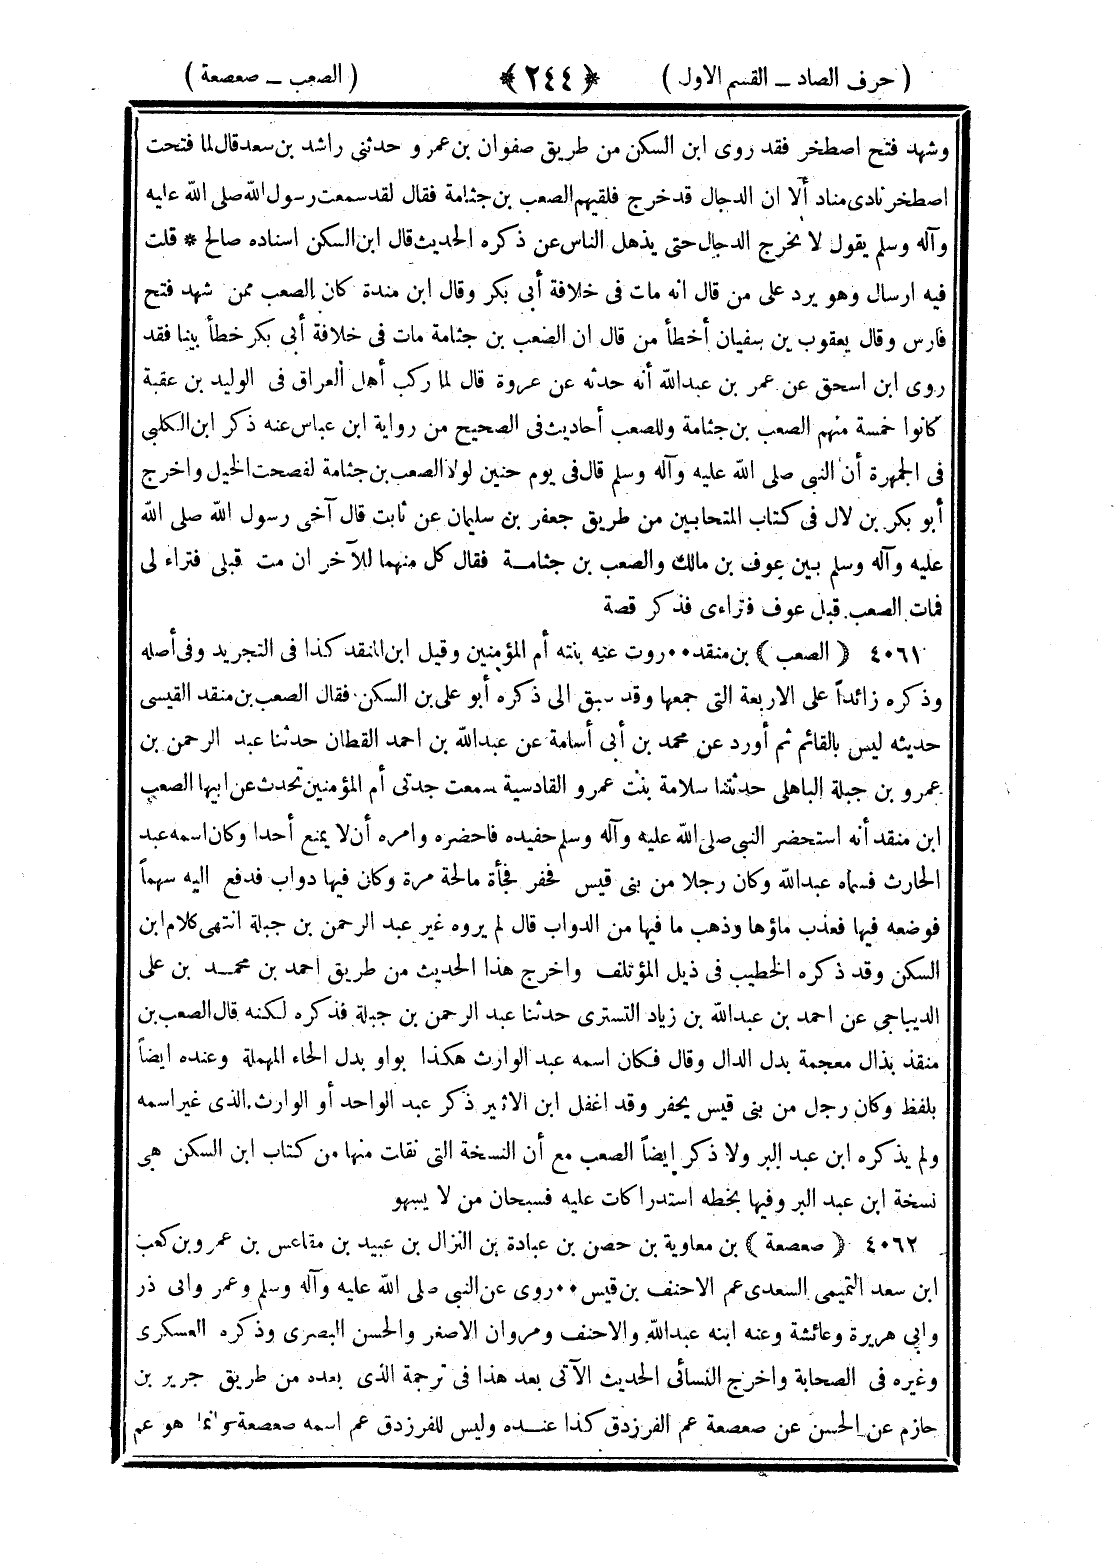 ( حرف الصاد ــ القسم الاول ) ﴿ ٢٤٤ ﴾ ( الصعب ــ صعصعة )
وشهد فتح اصطخر فقد روى ابن السكن من طريق صفوان بن عمر و حدثنى راشد بن سعد قال لما فتحت
اصطخر نادى مناد ألا ان الدجال قد خرج فلقيهم الصعب بن جثامة فقال لقد سمعت رسول الله صلى الله عليه
وآله وسلم يقول لا يخرج الدجال حتى يذهل الناس عن ذكره الحديث قال ابن السكن اسناده صالح * قلت
فيه ارسال وهو يرد على من قال انه مات فى خلافة أبى بكر وقال ابن مندة كان الصعب ممن شهد فتح
فارس وقال يعقوب بن سفيان أخطأ من قال ان الصعب بن جثامة مات فى خلافة أبى بكر خطأ بينا فقد
روى ابن اسحق عن عمر بن عبدالله أنه حدثه عن عروة قال لما ركب أهل العراق فى الوليد بن عقبة
كانوا خمسة منهم الصعب بن جثامة وللصعب أحاديث فى الصحيح من رواية ابن عباس عنه ذكر ابن الكلبى
فى الجمهرة أن النبى صلى الله عليه وآله وسلم قال فى يوم حنين لولا الصعب بن جثامة لفضحت الخيل واخرج
أبو بكر بن لال فى كتاب المتحابين من طريق جعفر بن سليمان عن ثابت قال آخى رسول الله صلى الله
عليه وآله وسلم بين عوف بن مالك والصعب بن جثامــة فقال كل منهما للآخر ان مت قبلى فتراء لى
فمات الصعب قبل عوف فتراءى فذكر قصة
٤٠٦١ ﴿ الصعب ﴾ بن منقد ٠٠ روت عنه بنته أم المؤمنين وقيل ابن المنقد كذا فى التجريد وفى أصله
وذكره زائداً على الاربعة التى جمعها وقد سبق الى ذكره أبو على بن السكن فقال الصعب بن منقد القيسى
حديثه ليس بالقائم ثم أورد عن محمد بن أبى أسامة عن عبدالله بن احمد القطان حدثنا عبد الرحمن بن
عمرو بن جبلة الباهلى حدثتنا سلامة بنت عمرو القادسية سمعت جدتى أم المؤمنين تحدث عن ابيها الصعب
ابن منقد أنه استحضر النبى صلى الله عليه وآله وسلم حفيده فاحضره وامره أن لا يمنع أحدا وكان اسمه عبد
الحارث فسماه عبدالله وكان رجلا من بنى قيس فحفر فجأة مالحة مرة وكان فيها دواب فدفع اليه سهماً
فوضعه فيها فعذب ماؤها وذهب ما فيها من الدواب قال لم يروه غير عبد الرحمن بن جبلة انتهى كلام ابن
السكن وقد ذكره الخطيب فى ذيل المؤتلف واخرج هذا الحديث من طريق احمد بن محمــد بن على
الديباجى عن احمد بن عبدالله بن زياد التسترى حدثنا عبد الرحمن بن جبلة فذكره لكنه قال الصعب بن
منقذ بذال معجمة بدل الدال وقال فكان اسمه عبد الوارث هكذا بواو بدل الحاء المهملة وعنده ايضاً
بلفظ وكان رجل من بنى قيس يحفر وقد اغفل ابن الاثير ذكر عبد الواحد أو الوارث الذى غير اسمه
ولم يذكره ابن عبد البر ولا ذكر ايضاً الصعب مع أن النسخة التى نقات منها من كتاب ابن السكن هى
نسخة ابن عبد البر وفيها بخطه استدراكات عليه فسبحان من لا يسهو
٤٠٦٢ ﴿ صعصعة ﴾ بن معاوية بن حصن بن عبادة بن النزال بن عبيد بن مقاعس بن عمرو بن كعب
ابن سعد التميمى السعدى عم الاحنف بن قيس ٠٠ روى عن النبى صلى الله عليه وآله وسلم وعمر وابى ذر
وابى هريرة وعائشة وعنه ابنه عبدالله والاحنف ومروان الاصغر والحسن البصرى وذكره العسكرى
وغيره فى الصحابة واخرج النسائى الحديث الآتى بعد هذا فى ترجمة الذى بعده من طريق جرير بن
حازم عن الحسن عن صعصعة عم الفرزدق كذا عنــده وليس للفرزدق عم اسمه صعصعة وانما هو عم